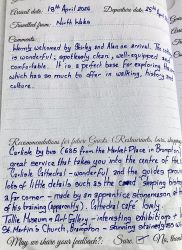 Arrival date: 18th April 2024 Departure date: 25th Ap
Travelled from: North Wales
Comments:
Warmly welcomed by Shirley and Alan on arrival. The cottage
is wonderful; spotlessly clean, well-equipped and
comfortable. It is a perfect base for exploring the
which has so much to offer in walking, history and
culture.
Recommendations for future Guests (Restaurants, bars, shopping
Carlisle by bus (685 from the Market Place in Brampton)
great service that takes you into the centre of the
Carlisle Cathedral - wonderful, and the guides provide
lots of little details such as the carved sleeping bishop
a far corner - made by an apprentice stonemason
of his training (apparently). Cathedral cafe lovely.
Tullie Museum & Art Gallery - interesting exhibition +
St. Martin's Church, Brampton - stunning stained glass win
May we share your feedback?: Sure. No